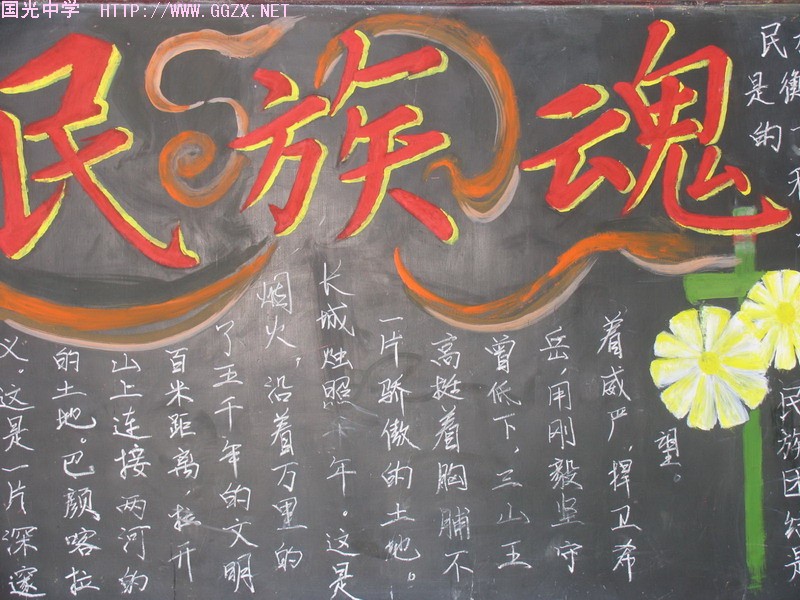 国光中学 HTTP://WWW.GGZX.NET
民族魂
义。这是一片深邃
的土地。巴颜喀拉
山上连接两河的
百米距离,拉开
了五千年的文明
烟火,沿着万里的
长城烛照千年。这是
一片骄傲的土地。
高挺着胸脯不
曾低下,三山五
岳,用刚毅坚守
着威严,捍卫希
望。
民是的
民族团结是